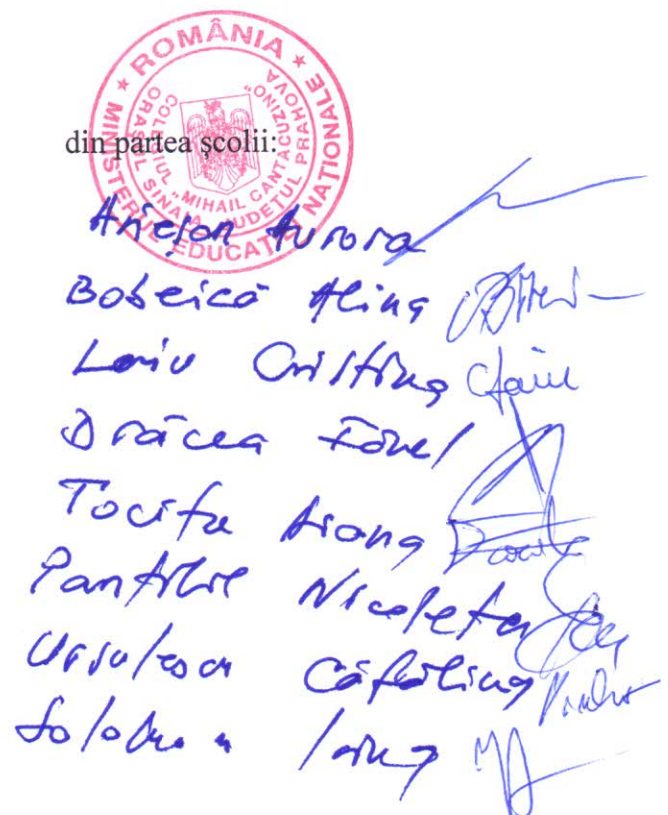 ROMÂNIA
MINISTERUL EDUCAȚIEI NAȚIONALE
COLEGIUL „MIHAIL CANTACUZINO"
ORAȘUL SINAIA - JUDEȚUL PRAHOVA
din partea școlii:
Aurora
Bobeică Alina
Laiu Cristina
Drăcea Ionel
Tocitu
Pantilie Nicoleta
Ursulescu Cătălina